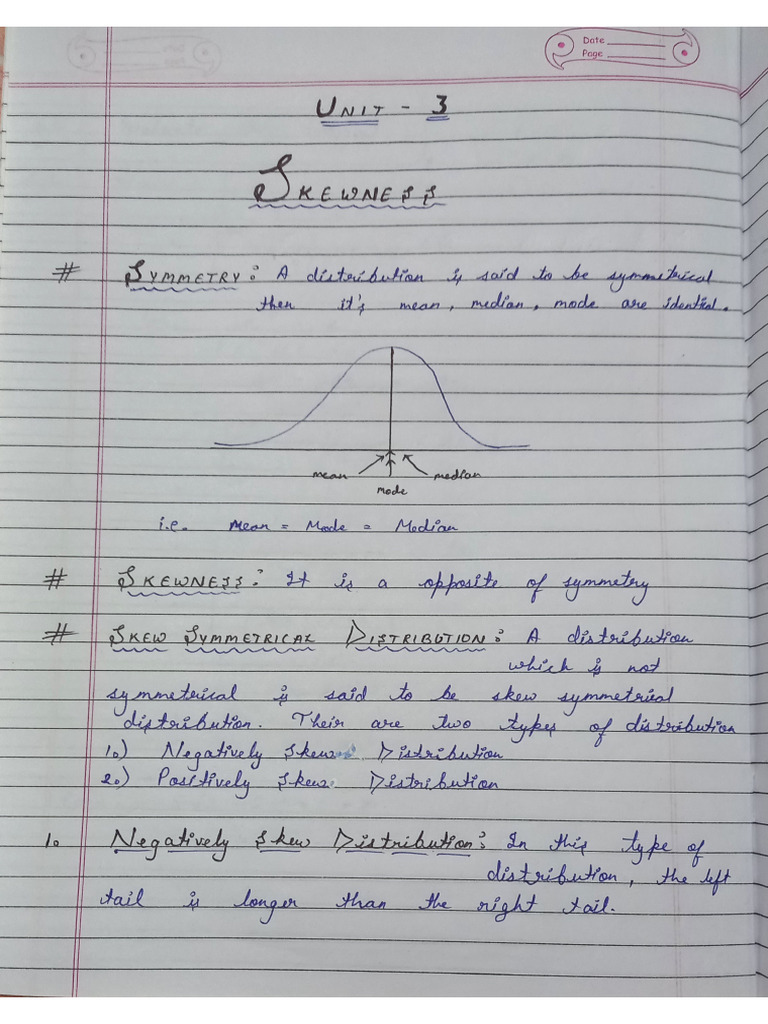 Date
Page
UNIT - 3
SKEWNESS
# SYMMETRY: A distribution is said to be symmetrical
then it's mean, median, mode are idential.
mean median
mode
i.e. Mean = Mode = Median
# SKEWNESS: It is a opposite of symmetry
# SKEW SYMMETRICAL DISTRIBUTION: A distribution
which is not
symmetrical is said to be skew symmetrical
distribution. Their are two types of distribution
1.) Negatively Skew Distribution
2.) Positively Skew Distribution
1. Negatively Skew Distribution: In this type of
distribution, the left
tail is longer than the right tail.